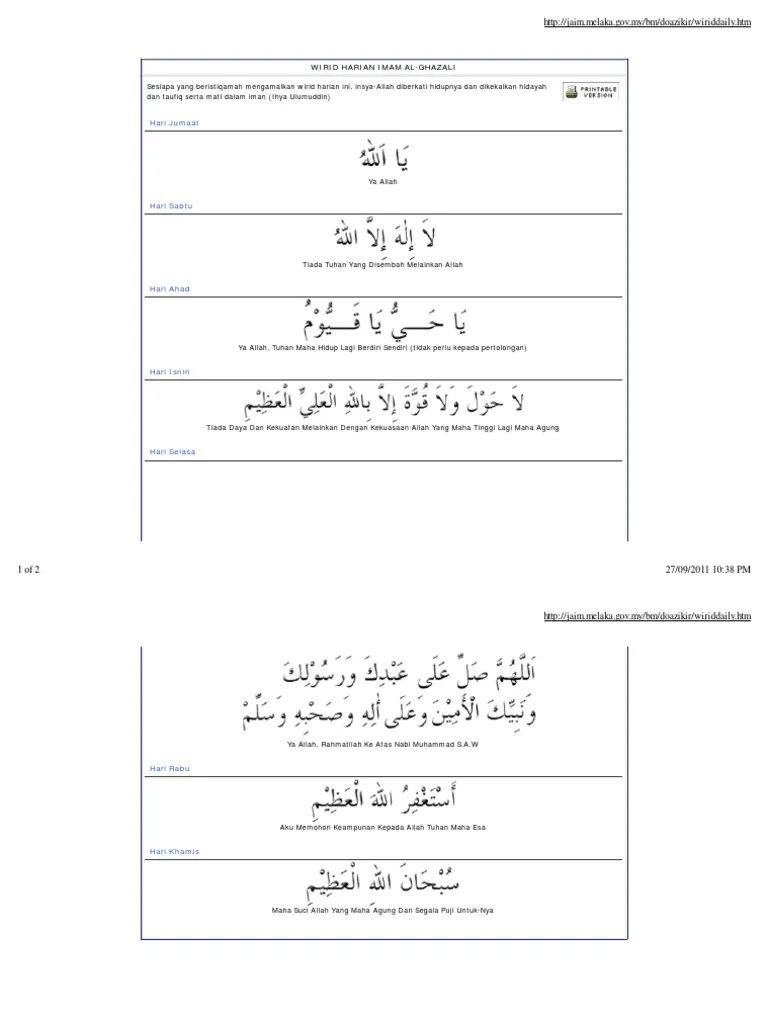 http://jaim.melaka.gov.my/bm/doazikir/wiriddaily.htm
WIRID HARIAN IMAM AL-GHAZALI
Sesiapa yang beristiqamah mengamalkan wirid harian ini, insya-Allah diberkati hidupnya dan dikekalkan hidayah
dan taufiq serta mati dalam iman (Ihya Ulumuddin)
PRINTABLE
VERSION
Hari Jumaat
يَا اَللهُ
Ya Allah
Hari Sabtu
لاَ إِلٰهَ إِلاَّ اللهُ
Tiada Tuhan Yang Disembah Melainkan Allah
Hari Ahad
يَا حَـــيُّ يَا قَـــيُّوْمُ
Ya Allah, Tuhan Maha Hidup Lagi Berdiri Sendiri (tidak perlu kepada pertolongan)
Hari Isnin
لاَ حَوْلَ وَلاَ قُوَّةَ إِلاَّ بِاللهِ الْعَلِيِّ الْعَظِيْمِ
Tiada Daya Dan Kekuatan Melainkan Dengan Kekuasaan Allah Yang Maha Tinggi Lagi Maha Agung
Hari Selasa
1 of 2
27/09/2011 10:38 PM
http://jaim.melaka.gov.my/bm/doazikir/wiriddaily.htm
اَللَّهُمَّ صَلِّ عَلَى عَبْدِكَ وَرَسُوْلِكَ
وَنَبِيِّكَ الْأَمِيْنَ وَعَلَى أٰلِهِ وَصَحْبِهِ وَسَلِّمْ
Ya Allah, Rahmatilah Ke Atas Nabi Muhammad S.A.W
Hari Rabu
أَسْتَغْفِرُ اللهَ الْعَظِيْمِ
Aku Memohon Keampunan Kepada Allah Tuhan Maha Esa
Hari Khamis
سُبْحَانَ اللهِ الْعَظِيْمِ
Maha Suci Allah Yang Maha Agung Dan Segala Puji Untuk-Nya